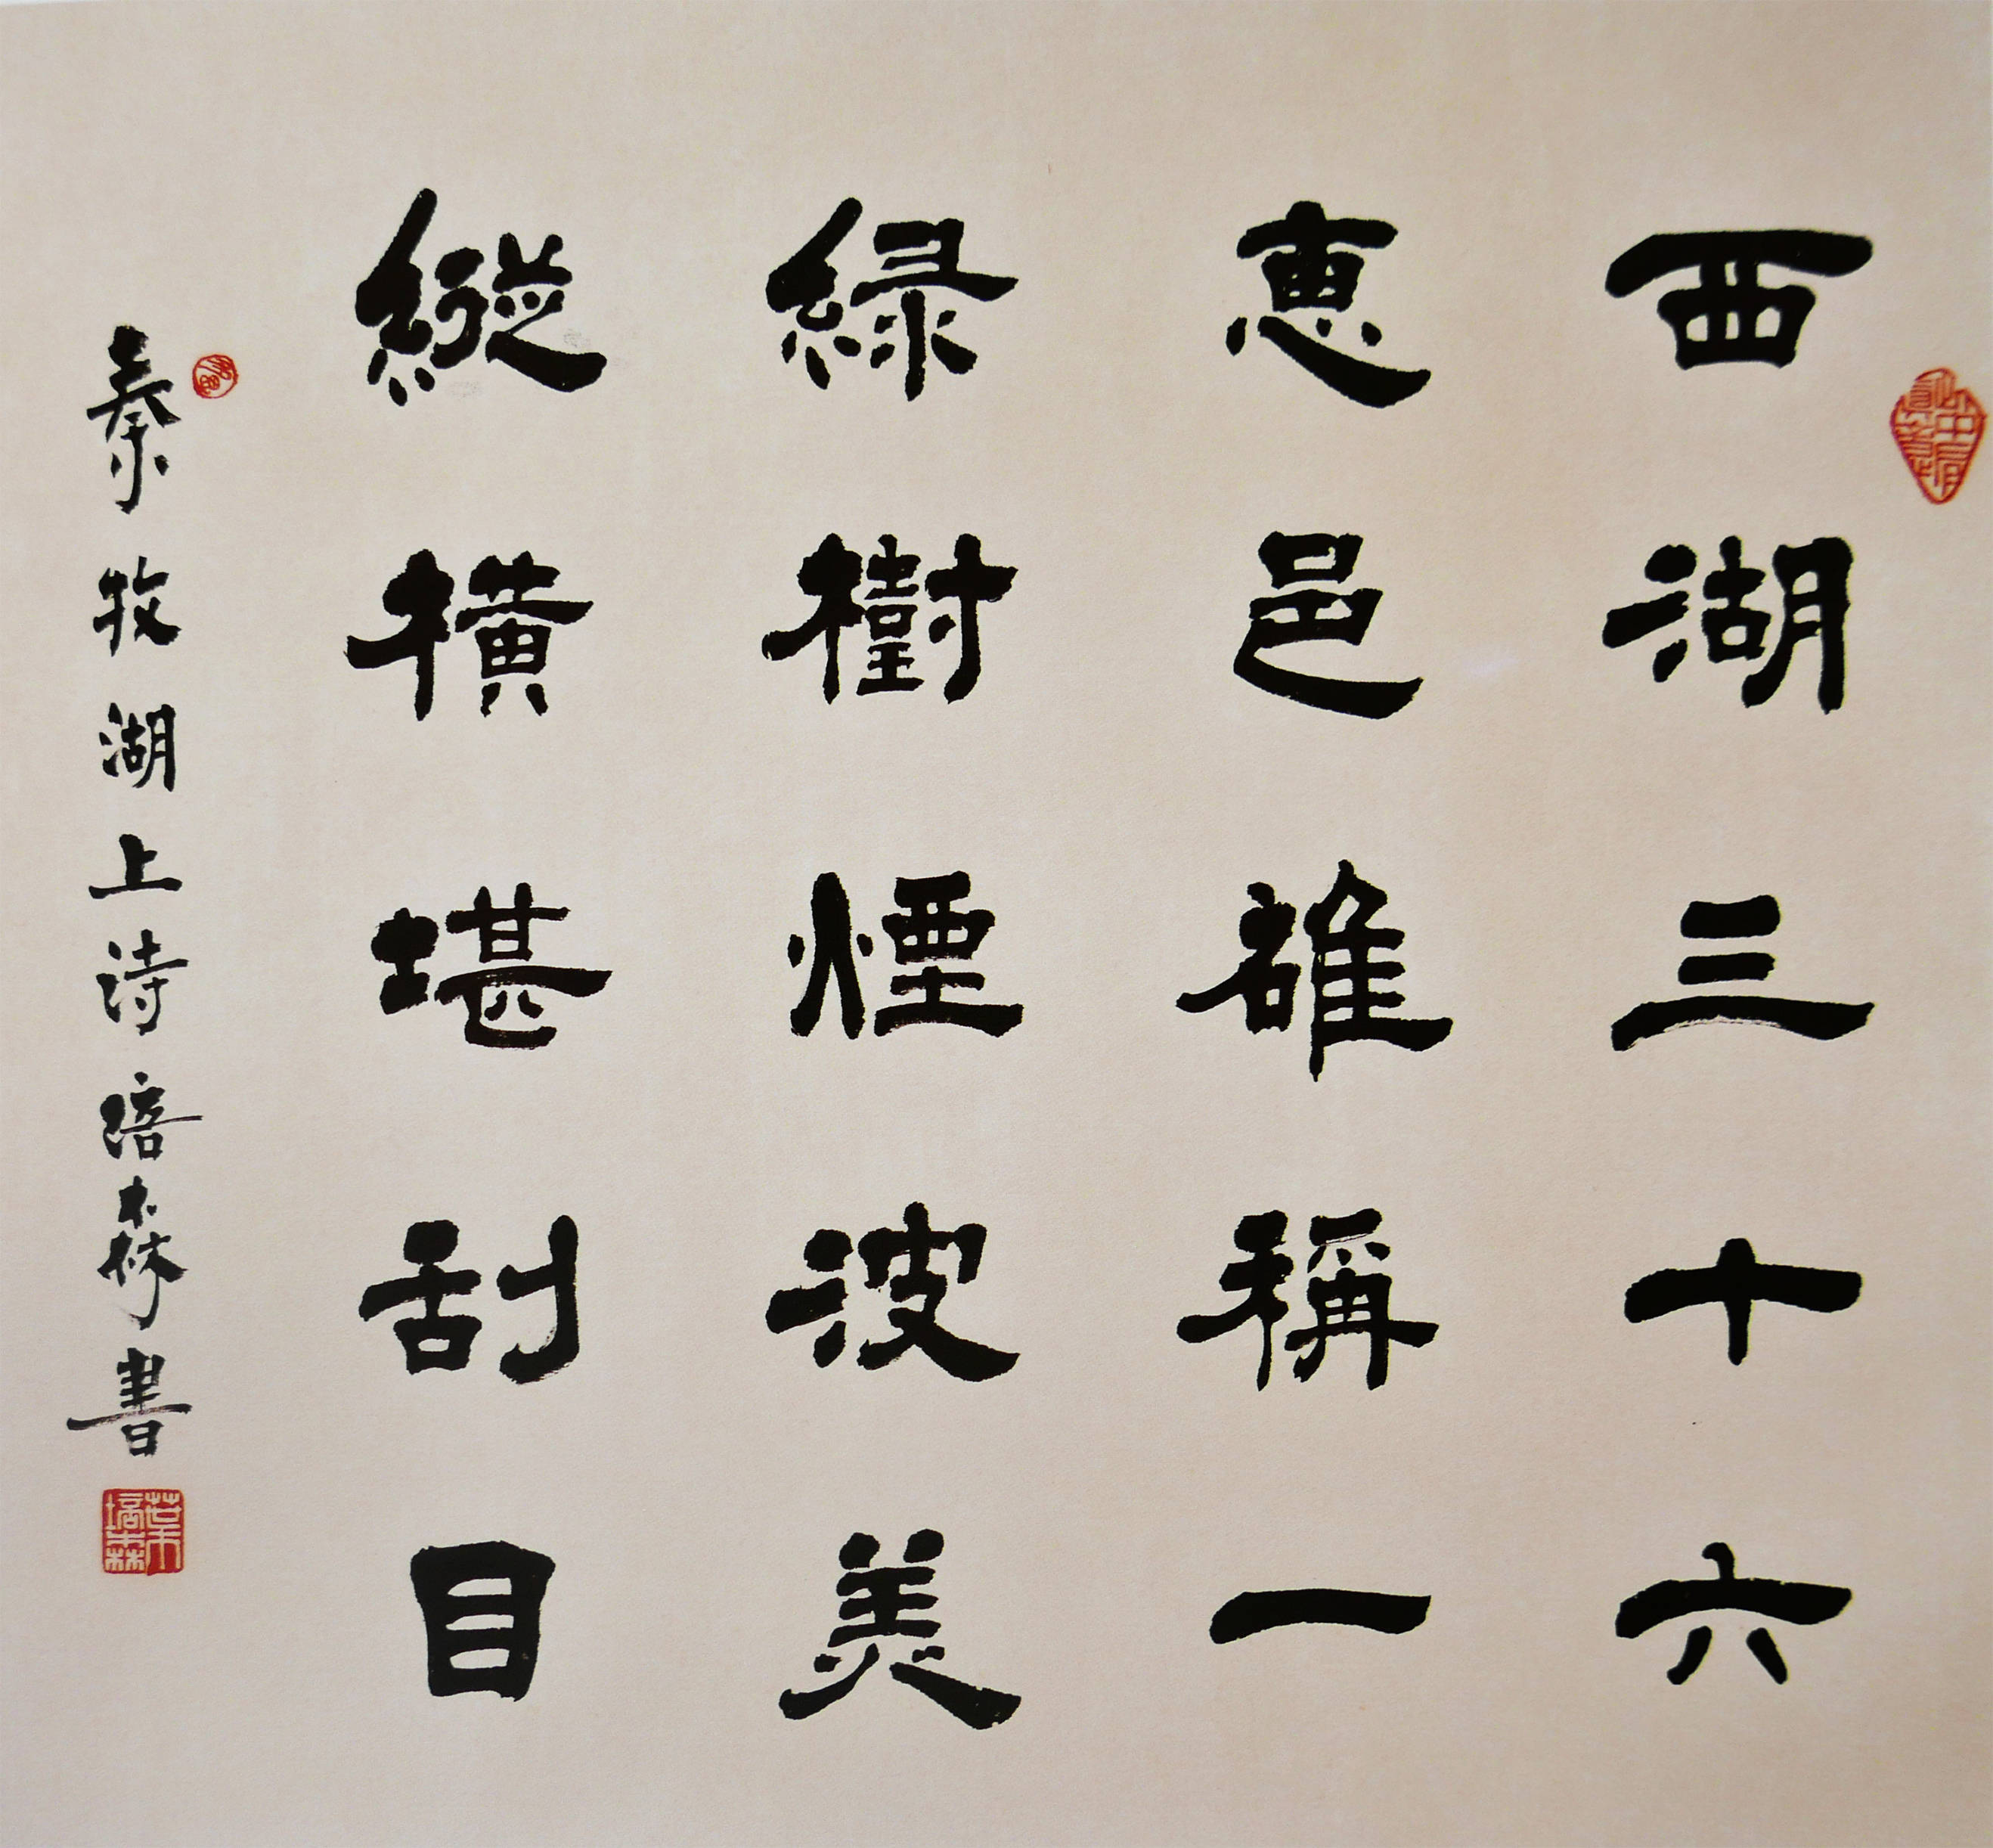 西湖三十六
惠邑雄稱一
綠樹煙波美
縱橫堪刮目
秦牧湖上詩培森書
葉培森